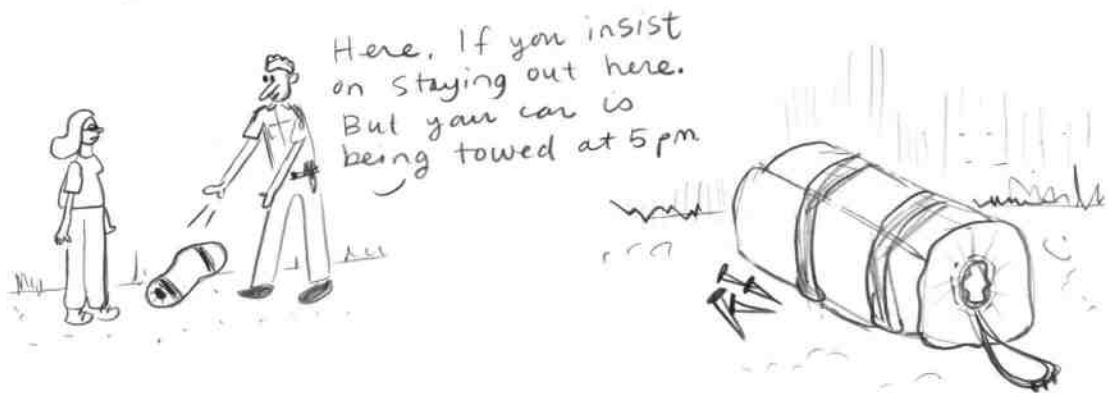 Here. If you insist
on staying out here.
But your car is
being towed at 5pm